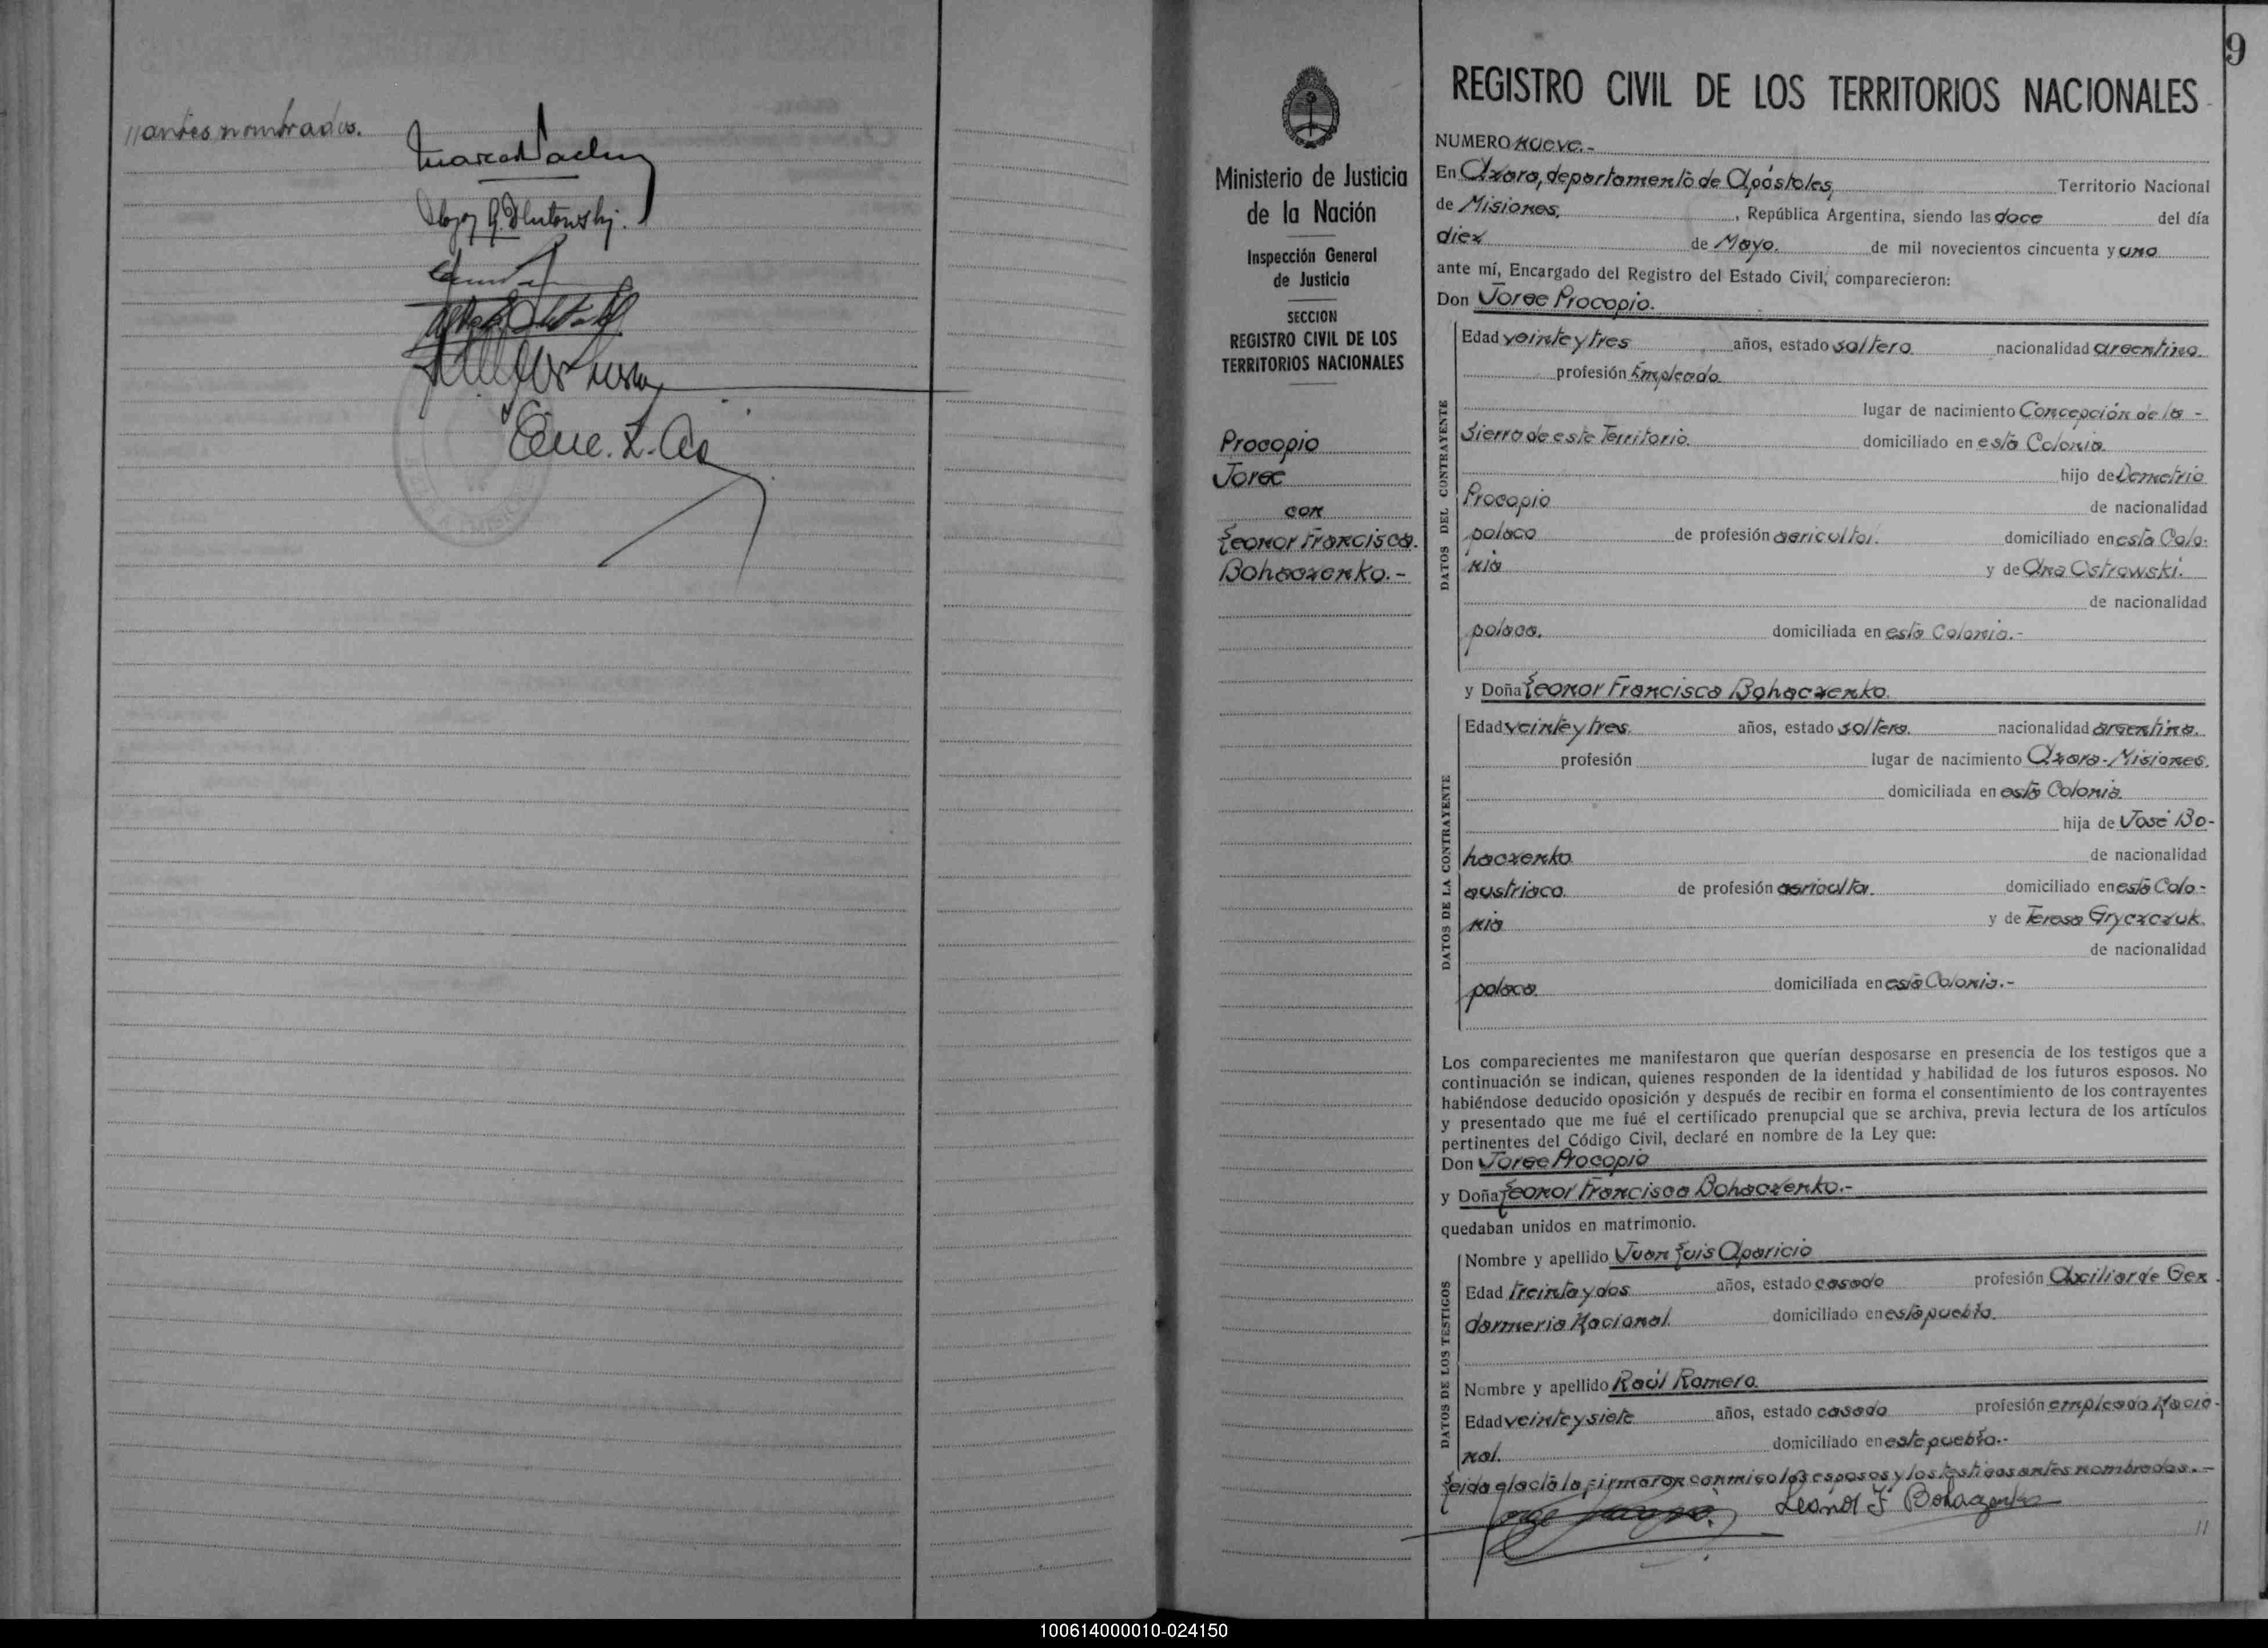 //antes nombrados.
9
REGISTRO CIVIL DE LOS TERRITORIOS NACIONALES
Ministerio de Justicia
de la Nación
Inspección General
de Justicia
SECCION
REGISTRO CIVIL DE LOS
TERRITORIOS NACIONALES
Procopio
Jorge
con
Leonor Francisca
Bohaczenko.-
NUMERO nueve.-
En Azara, departamento de Apóstoles, Territorio Nacional
de Misiones, República Argentina, siendo las doce del día
diez de Mayo. de mil novecientos cincuenta y uno
ante mí, Encargado del Registro del Estado Civil, comparecieron:
Don Jorge Procopio.
DATOS DEL CONTRAYENTE
Edad veinte y tres años, estado soltero nacionalidad argentino.
profesión Empleado.
lugar de nacimiento Concepción de la -
Sierra de este Territorio. domiciliado en esta Colonia.
hijo de Demetrio
Procopio de nacionalidad
polaco de profesión agricultor. domiciliado en esta Colo-
nia y de Ana Ostrowski.
de nacionalidad
polaca. domiciliada en esta Colonia.-
y Doña Leonor Francisca Bohaczenko.
DATOS DE LA CONTRAYENTE
Edad veinte y tres. años, estado soltera. nacionalidad argentina.
profesión lugar de nacimiento Azara-Misiones.
domiciliada en esta Colonia.
hija de José Bo-
haczenko de nacionalidad
austriaco. de profesión agricultor. domiciliado en esta Colo-
nia y de Teresa Gryczczuk.
de nacionalidad
polaca. domiciliada en esta Colonia.-
Los comparecientes me manifestaron que querían desposarse en presencia de los testigos que a
continuación se indican, quienes responden de la identidad y habilidad de los futuros esposos. No
habiéndose deducido oposición y después de recibir en forma el consentimiento de los contrayentes
y presentado que me fué el certificado prenupcial que se archiva, previa lectura de los artículos
pertinentes del Código Civil, declaré en nombre de la Ley que:
Don Jorge Procopio
y Doña Leonor Francisca Bohaczenko.-
quedaban unidos en matrimonio.
DATOS DE LOS TESTIGOS
Nombre y apellido Juan Luis Aparicio
Edad treinta y dos años, estado casado profesión Auxiliar de Gen-
darmeria Nacional. domiciliado en este pueblo.
Nombre y apellido Raúl Romero.
Edad veinte y siete años, estado casado profesión empleado Nacio-
nal. domiciliado en este pueblo.-
Leida el acta la firmaron conmigo los esposos y los testigos antes nombrados.-
Leonor F Bohaczenko
//
100614000010-024150